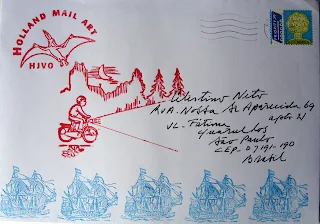 HOLLAND MAIL ART
HJVO
Clestino Neto
RUA Nossa Sr. Aparecida 69
apto
VL. Fátima
Guarulhos
São Paulo
CEP. 07191-190
Brasil